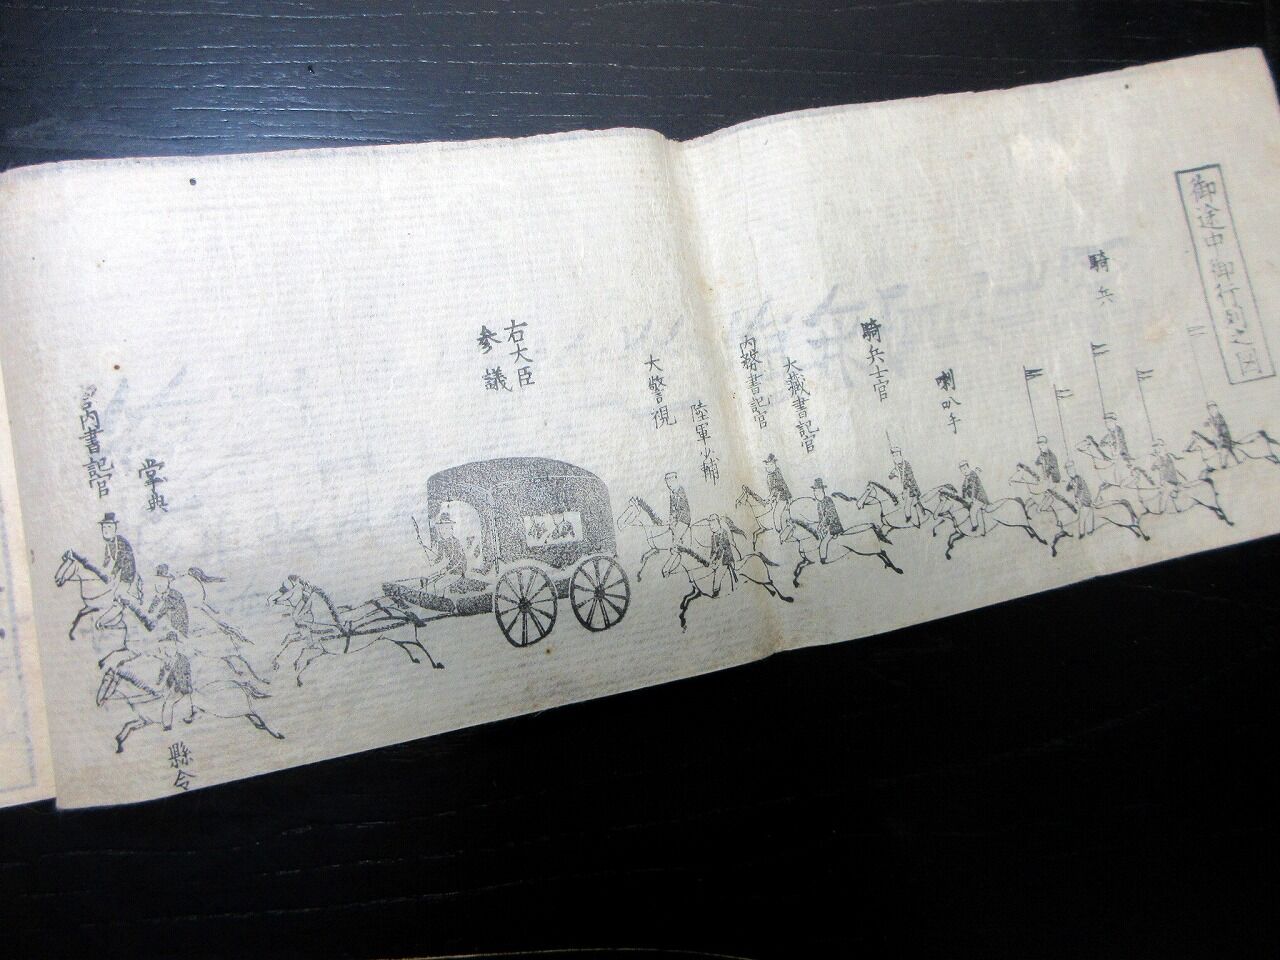 御途中御行列之図
騎兵
喇叭手
騎兵士官
大藏書記官
内務書記官
陸軍少輔
大警視
右大臣
参議
掌典
宮内書記官
縣令